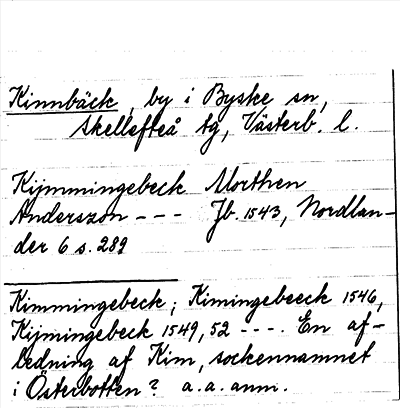 Kinnbäck, by i Byske sn,
Skellefteå tg, Västerb. l.
Kijmmingebeck Morthen
Anderszon - - - Jb. 1543, Nordlan-
der 6 s. 289
Kimmingebeck, Kimingebeeck 1546,
Kijmingebeck 1549, 52 - - - . En af-
ledning af Kim, sockennamnet
i Österbotten? a. a. anm.